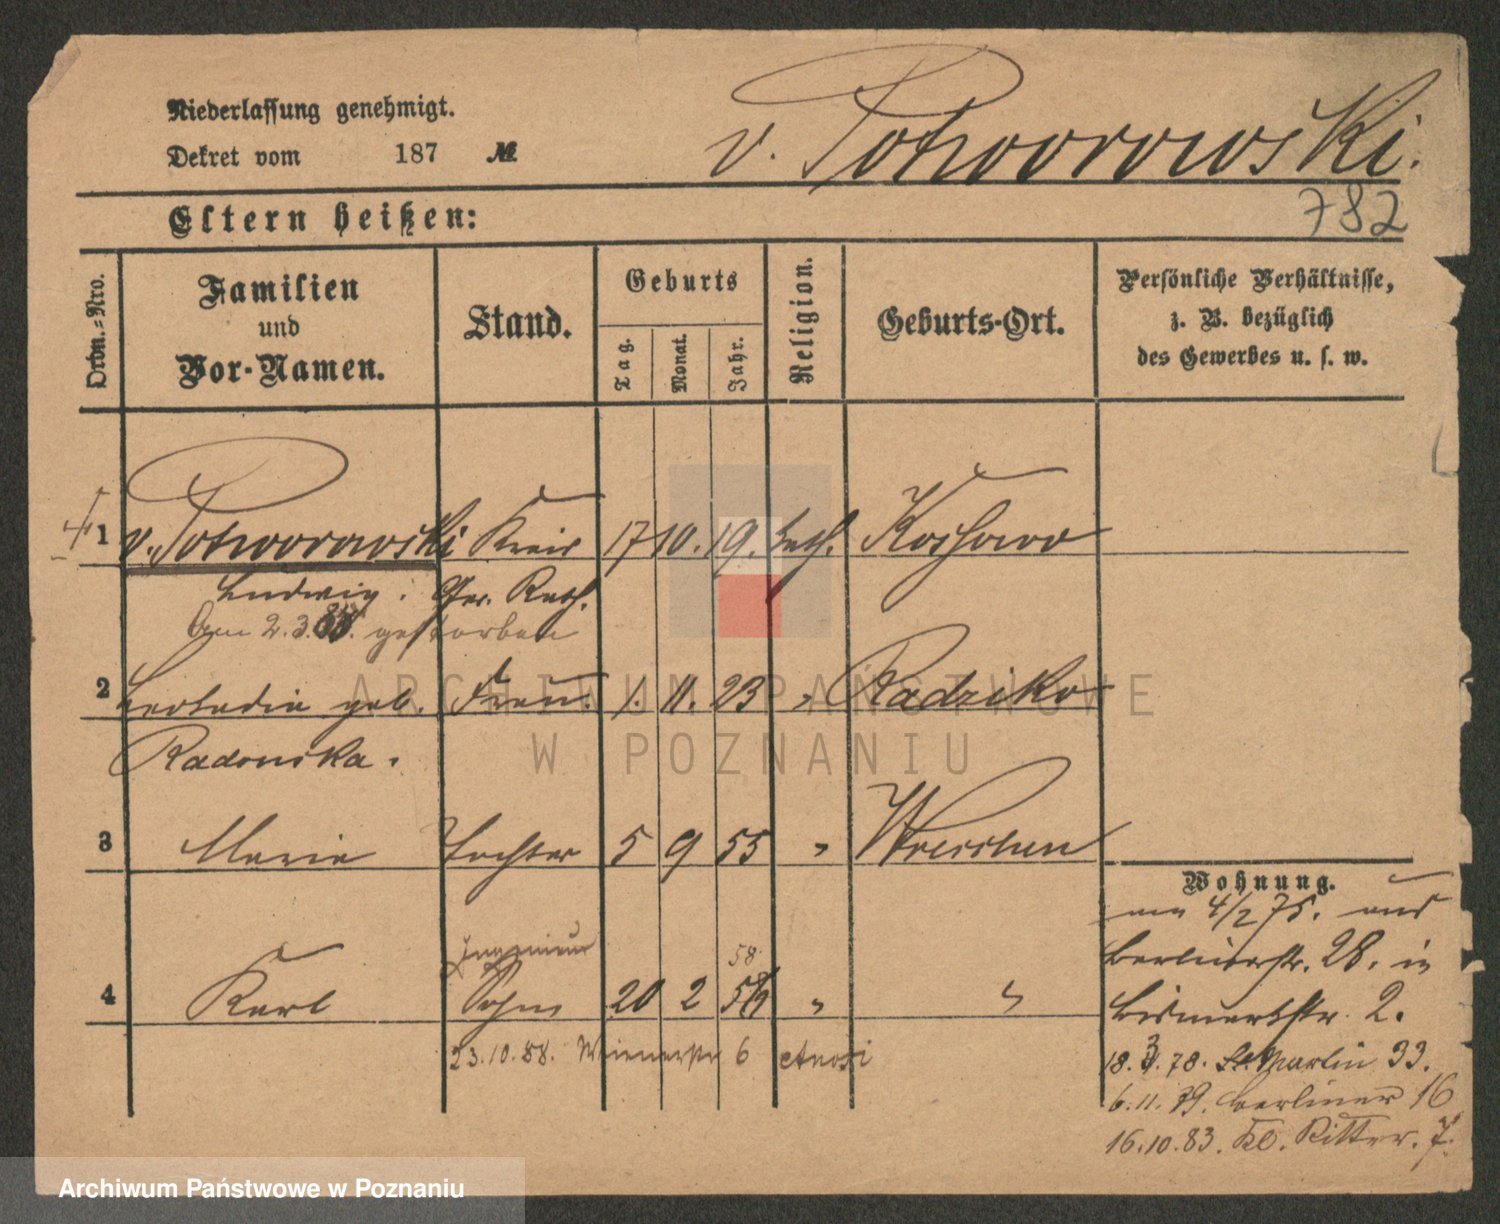 Niederlassung genehmigt.
Dekret vom 187 №
v. Potworowski.
782
Eltern heißen:
Ordn.=Nro.
Familien und Vor-Namen.
Stand.
Geburts
Tag.
Monat.
Jahr.
Religion.
Geburts-Ort.
Persönliche Verhältnisse,
z. B. bezüglich
des Gewerbes u. s. w.
1 v. Potworowski Kreis 17 10. 19. kath.
Ludwig. Ger. Rath.
Am 2.3. gestorben
2 Leokadia geb. Frau. 1. 11. 23 " Radziko
Radonska.
3 Marie Tochter 5 9 55 " Wreschen
Ingenieur 58.
4 Karl Sohn 20 2 "  "
23.10.88. Wienerstr 6
Wohnung.
am 4/2 75. aus
Berlinerstr. 28. in
Bismarkstr. 2.
18.3.78. St. Martin 33.
6.11.79. Berliner 16
16.10.83. Kl. Ritter. 7.
ARCHIWUM PAŃSTWOWE
W POZNANIU
Archiwum Państwowe w Poznaniu